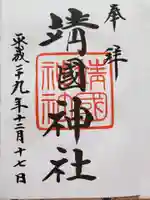 奉拝
靖國神社
平成二十九年十二月十七日
靖國神社